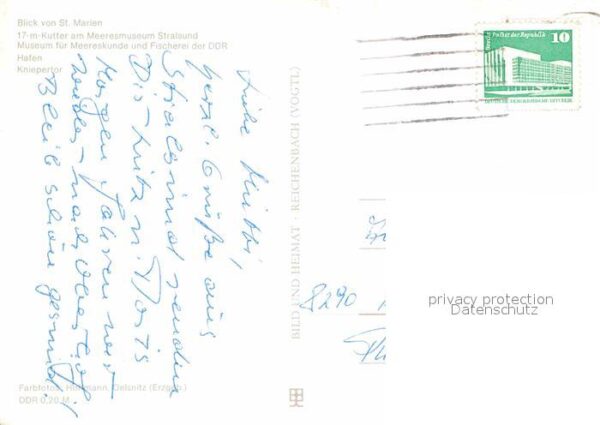 Blick von St. Marien
17-m-Kutter am Meeresmuseum Stralsund
Museum für Meereskunde und Fischerei der DDR
Hafen
Kniepertor
Liebe
herzl. Grüße aus
Stralsund senden
Dir Fritz u. Doris
Morgen fahren wir
wieder nach
Bleib schön gesund!
Farbfotos: Oelsnitz (Erzgeb.)
DDR 0,20 M
BILD UND HEIMAT · REICHENBACH (VOGTL)
Palast der Republik
10
DEUTSCHE DEMOKRATISCHE REPUBLIK
8290
privacy protection
Datenschutz